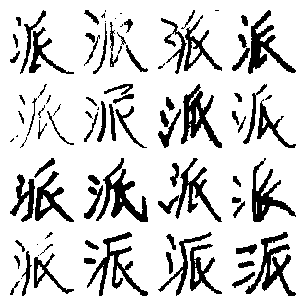 派派派派
派派派派
派派派派
派派派派